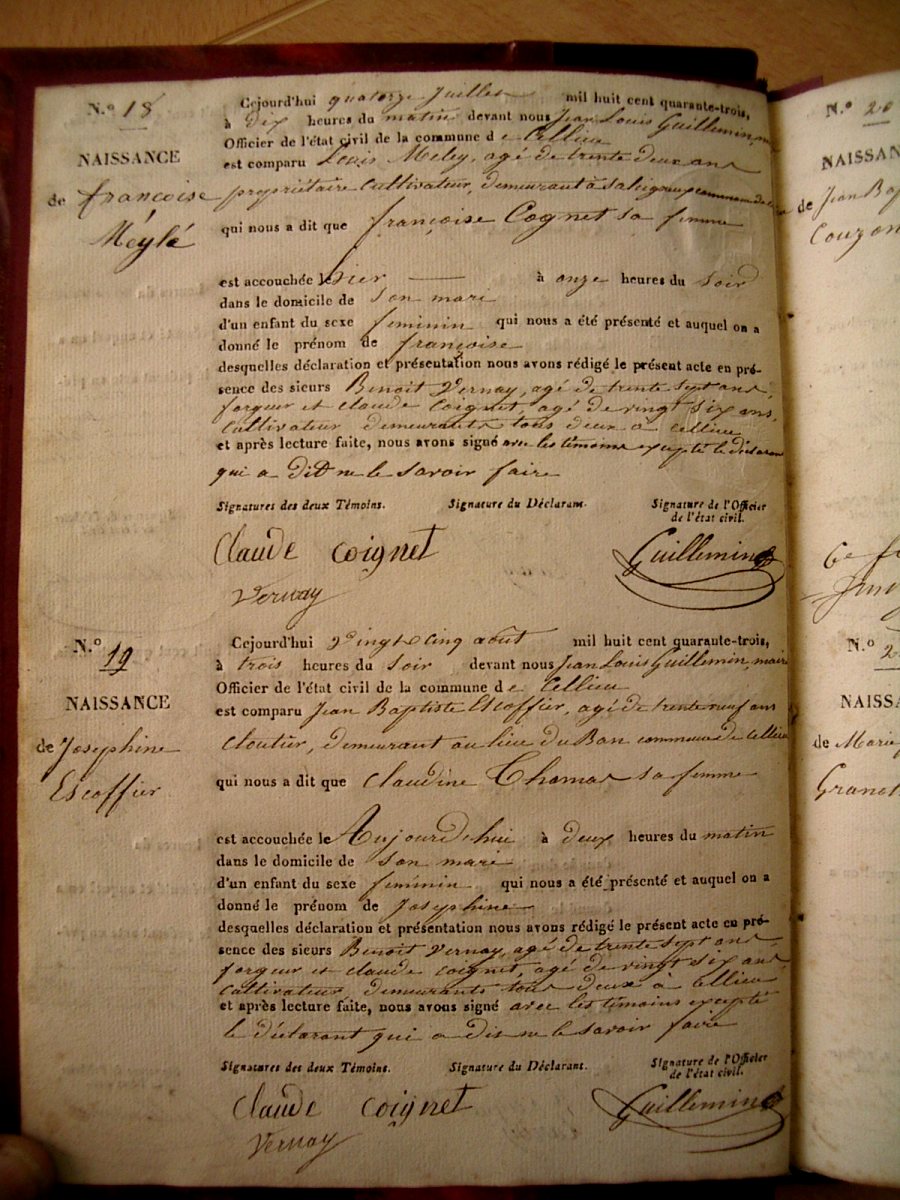 N.º 18
NAISSANCE
de françoise
Méylé
Cejourd'hui quatorze juillet mil huit cent quarante-trois,
à dix heures du matin devant nous Jean Louis Guillemin,
Officier de l'état civil de la commune de Cellieu
est comparu Louis Meley, agé de trente deux ans
propriétaire cultivateur, demeurant à
qui nous a dit que françoise Cognet sa femme
est accouchée le hier à onze heures du soir
dans le domicile de son mari
d'un enfant du sexe feminin qui nous a été présenté et auquel on a
donné le prénom de françoise
desquelles déclaration et présentation nous avons rédigé le présent acte en pré-
sence des sieurs Benoit Vernay, agé de trente sept ans,
forgeur et claude Coignet, agé de vingt six ans,
cultivateur demeurants tous deux à cellieu
et après lecture faite, nous avons signé avec les témoins excepté le déclarant
qui a dit ne le savoir faire
Signatures des deux Témoins. Signature du Déclarant. Signature de l'Officier
de l'état civil.
Claude Coignet Guillemin
Vernay
N.º 19
NAISSANCE
de Josephine
Escoffier
Cejourd'hui Vingt cinq août mil huit cent quarante-trois,
à trois heures du soir devant nous Jean Louis Guillemin, maire
Officier de l'état civil de la commune de Cellieu
est comparu Jean Baptiste Escoffier, agé de trente neuf ans
Cloutier, demeurant au lieu du Ban commune de Cellieu
qui nous a dit que Claudine Thomas sa femme
est accouchée le Aujourd'hui à deux heures du matin
dans le domicile de son mari
d'un enfant du sexe feminin qui nous a été présenté et auquel on a
donné le prénom de Josephine
desquelles déclaration et présentation nous avons rédigé le présent acte en pré-
sence des sieurs Benoit Vernay, agé de trente sept ans,
forgeur et claude Coignet, agé de vingt six ans
cultivateur, demeurants tous deux à Cellieu
et après lecture faite, nous avons signé avec les témoins excepté
le déclarant qui a dit ne le savoir faire
Signatures des deux Témoins. Signature du Déclarant. Signature de l'Officier
de l'état civil.
Claude Coignet Guillemin
Vernay
N.º 20
NAISSAN
de Jean Bap
Couzon
N.º 2
NAISSA
de Marie
Granot